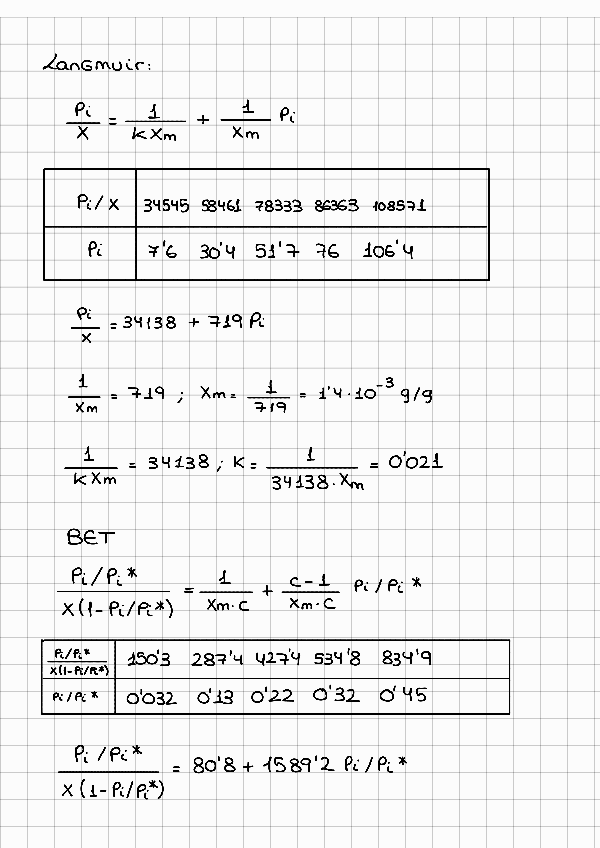 Langmuir:
Pi/X = 1/(K Xm) + 1/Xm Pi
Pi/X 34545 58461 78333 86363 108571
Pi 7'6 30'4 51'7 76 106'4
Pi/X = 34138 + 719 Pi
1/Xm = 719 ; Xm = 1/719 = 1'4·10^-3 g/g
1/(K Xm) = 34138 ; K = 1/(34138·Xm) = 0'021
BET
(Pi/Pi*)/(X(1-Pi/Pi*)) = 1/(Xm·C) + (C-1)/(Xm·C) Pi/Pi*
(Pi/Pi*)/(X(1-Pi/Pi*)) 150'3 287'4 427'4 534'8 834'9
Pi/Pi* 0'032 0'13 0'22 0'32 0'45
(Pi/Pi*)/(X(1-Pi/Pi*)) = 80'8 + 1589'2 Pi/Pi*